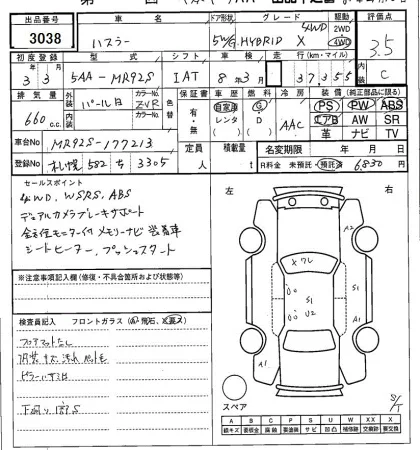 出品番号 車名 ドア形状 グレード 駆動 評価点
3038 ハスラー 5W/G HYBRID X 4WD 2WD 4WD 3.5
初度登録 型式 シフト 車検 走行(km・マイル) C
3年3月 5AA-MR92S IAT 8年3月 37,355
排気量 外装 パール白 カラーNo. ZVR 色替 車歴 燃料 冷房 装備(純正部品に限る)
660c.c. 内装 カラーNo. 有・無 自家用 レンタ G D AAC PS PW ABS
エアB AW SR
革 ナビ TV
車台No MR92S-177213 定員 人 積載量 t 名変期限 年 月 日
登録No 札幌 582 ち 3305 R料金 未預託 預託済 6,830
セールスポイント
4WD、WSRS、ABS
デュアルカメラブレーキサポート
全方位モニター付メモリーナビ装着車
シートヒーター、プッシュスタート
左 右
A2
Xワレ
S1
S1
U2
A1 A1
S/T
スペア
※注意事項記入欄(修復・不具合箇所および状態等)
検査員記入 フロントガラス(飛石、)
フロアマットなし
A B C P S U W X XX X